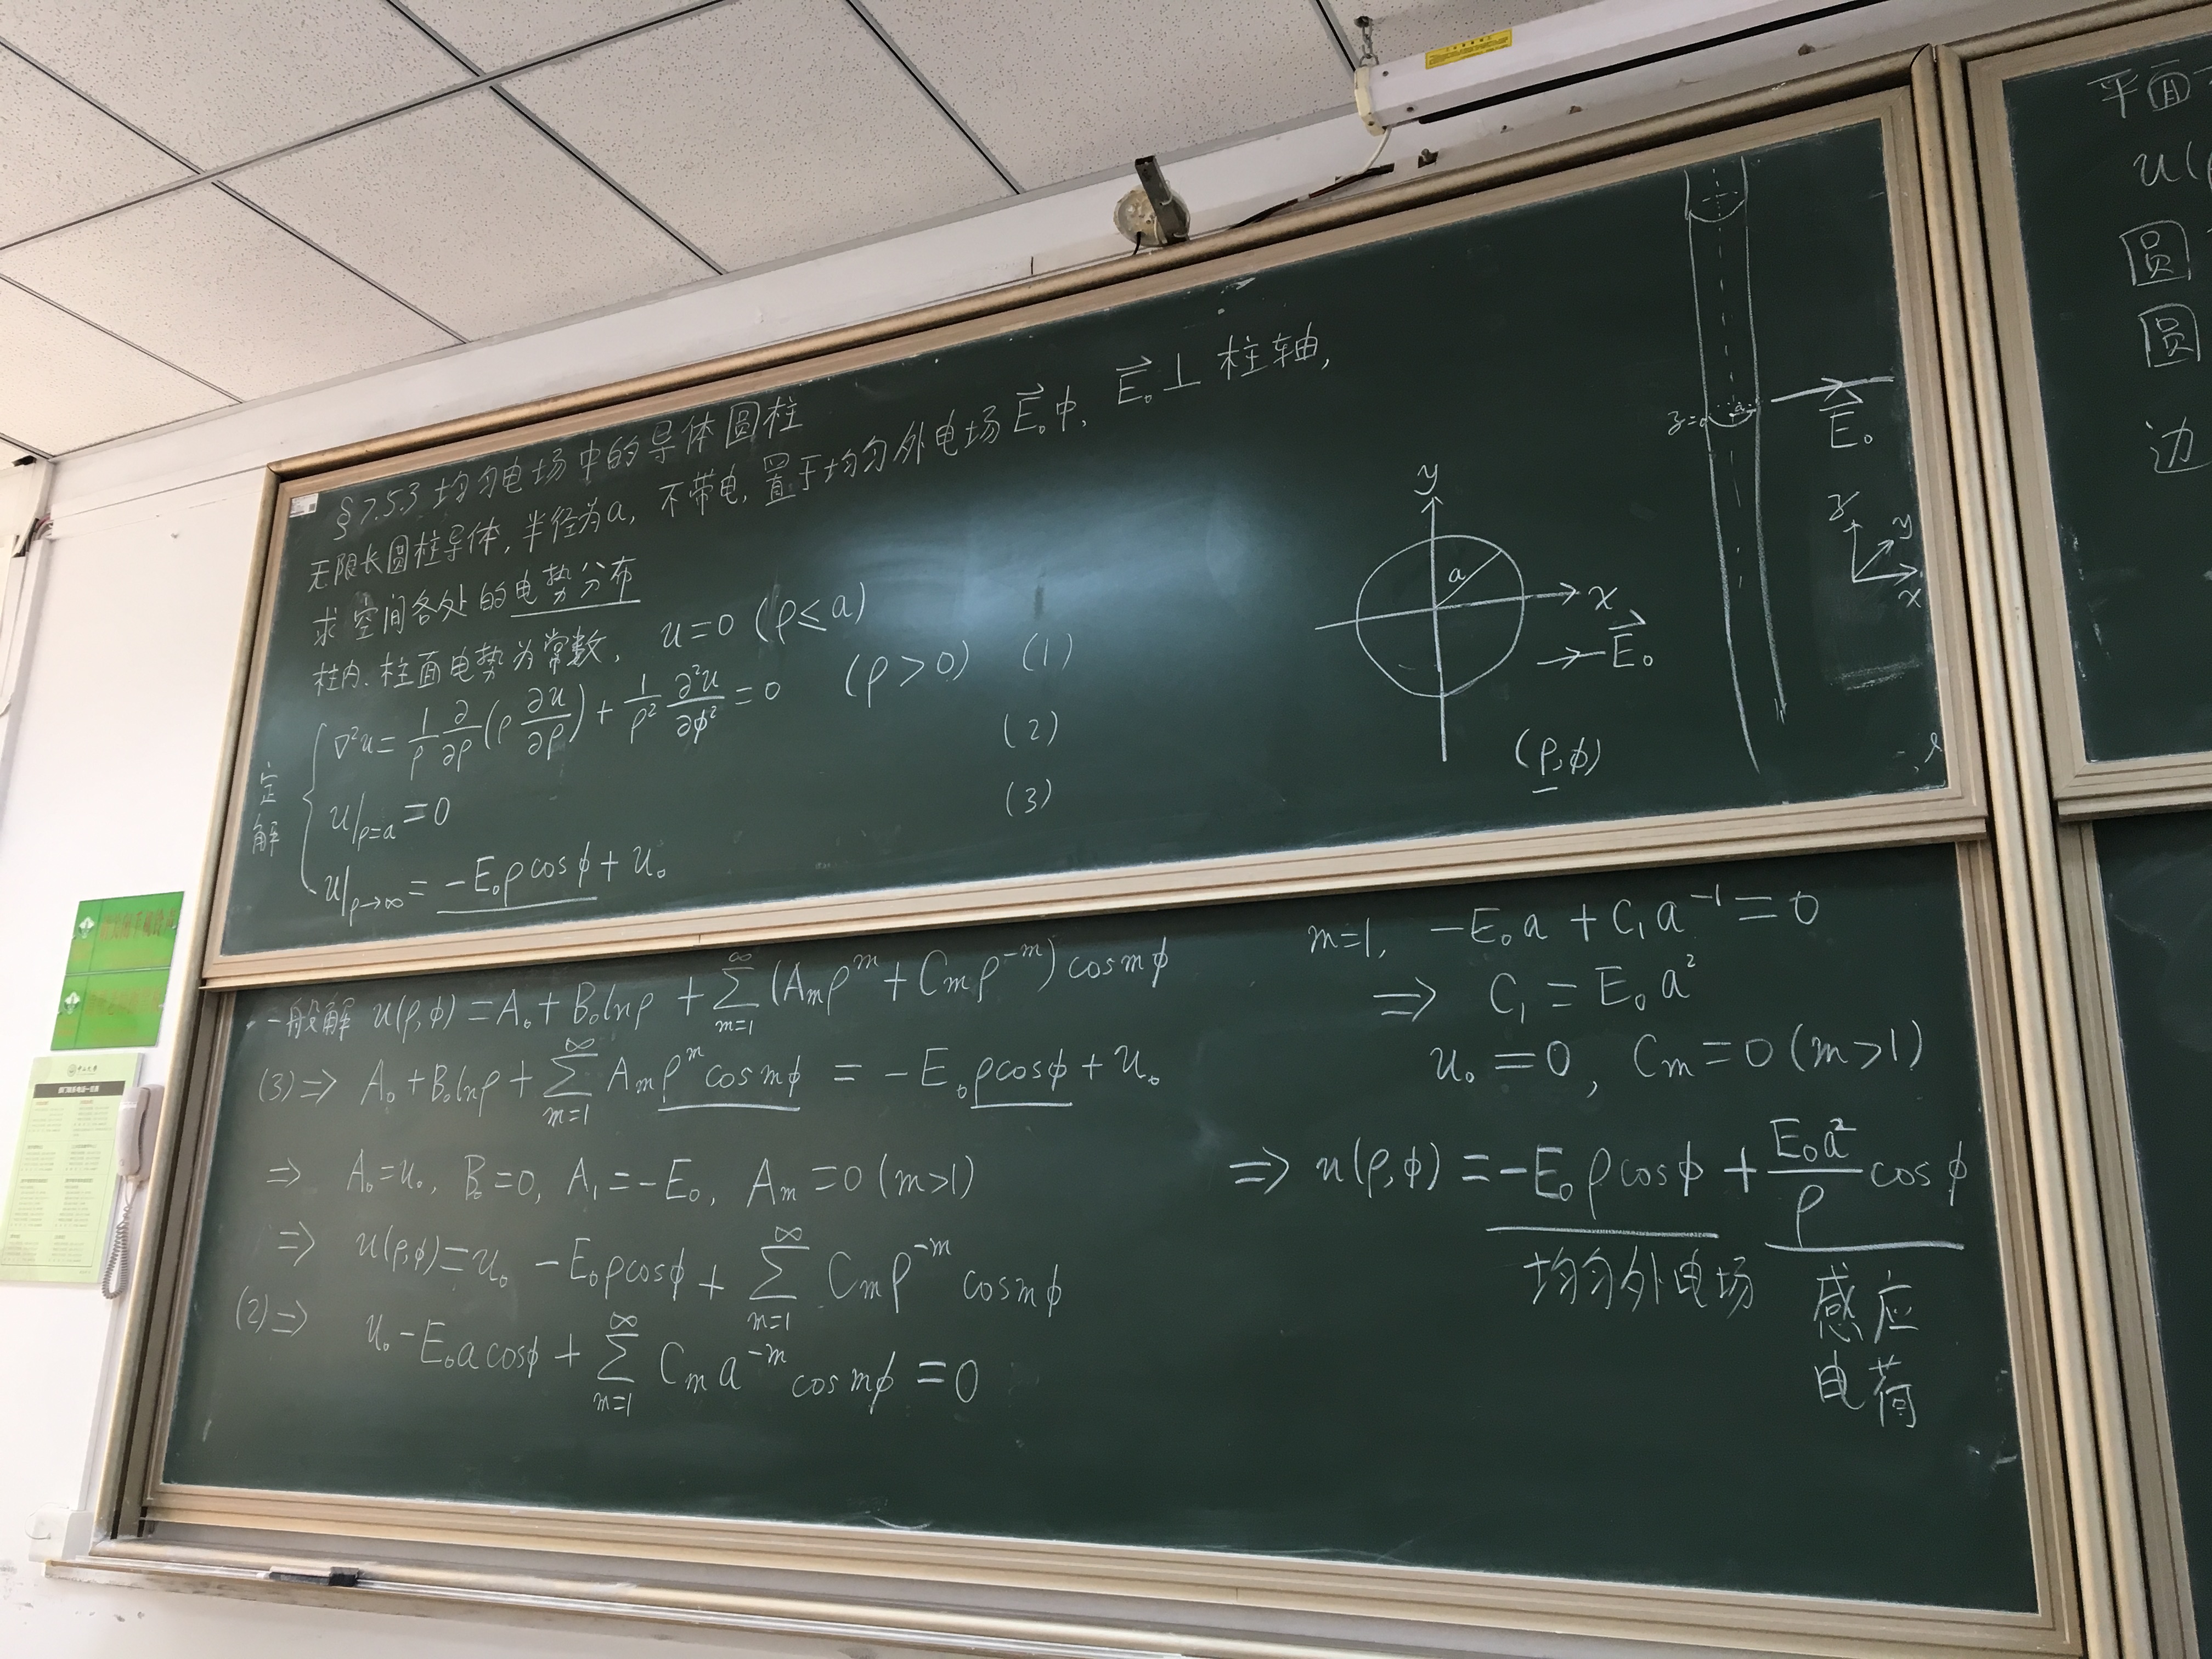 §7.5.3 均匀电场中的导体圆柱
无限长圆柱导体, 半径为a, 不带电, 置于均匀外电场 E⃗₀中, E⃗₀⊥柱轴,
求空间各处的电势分布
柱内、柱面电势为常数, u=0 (ρ≤a)
定解
∇²u = 1/ρ ∂/∂ρ(ρ ∂u/∂ρ) + 1/ρ² ∂²u/∂φ² = 0 (ρ>0) (1)
u|ρ=a = 0 (2)
u|ρ→∞ = -E₀ρcosφ + u₀ (3)
y
a
x
E⃗₀
(ρ,φ)
z=0
E⃗₀
z
y
x
一般解 u(ρ,φ) = A₀ + B₀lnρ + ∑_{m=1}^{∞} (A_mρ^m + C_mρ^{-m}) cosmφ
(3)⇒ A₀ + B₀lnρ + ∑_{m=1}^{∞} A_mρ^m cosmφ = -E₀ρcosφ + u₀
⇒ A₀=u₀, B₀=0, A₁=-E₀, A_m=0 (m>1)
⇒ u(ρ,φ) = u₀ - E₀ρcosφ + ∑_{m=1}^{∞} C_mρ^{-m} cosmφ
(2)⇒ u₀ - E₀acosφ + ∑_{m=1}^{∞} C_m a^{-m} cosmφ = 0
m=1, -E₀a + C₁a^{-1} = 0
⇒ C₁ = E₀a²
u₀=0, C_m=0 (m>1)
⇒ u(ρ,φ) = -E₀ρcosφ + E₀a²/ρ cosφ
均匀外电场
感应
电荷
平面
u(ρ
圆
圆
边